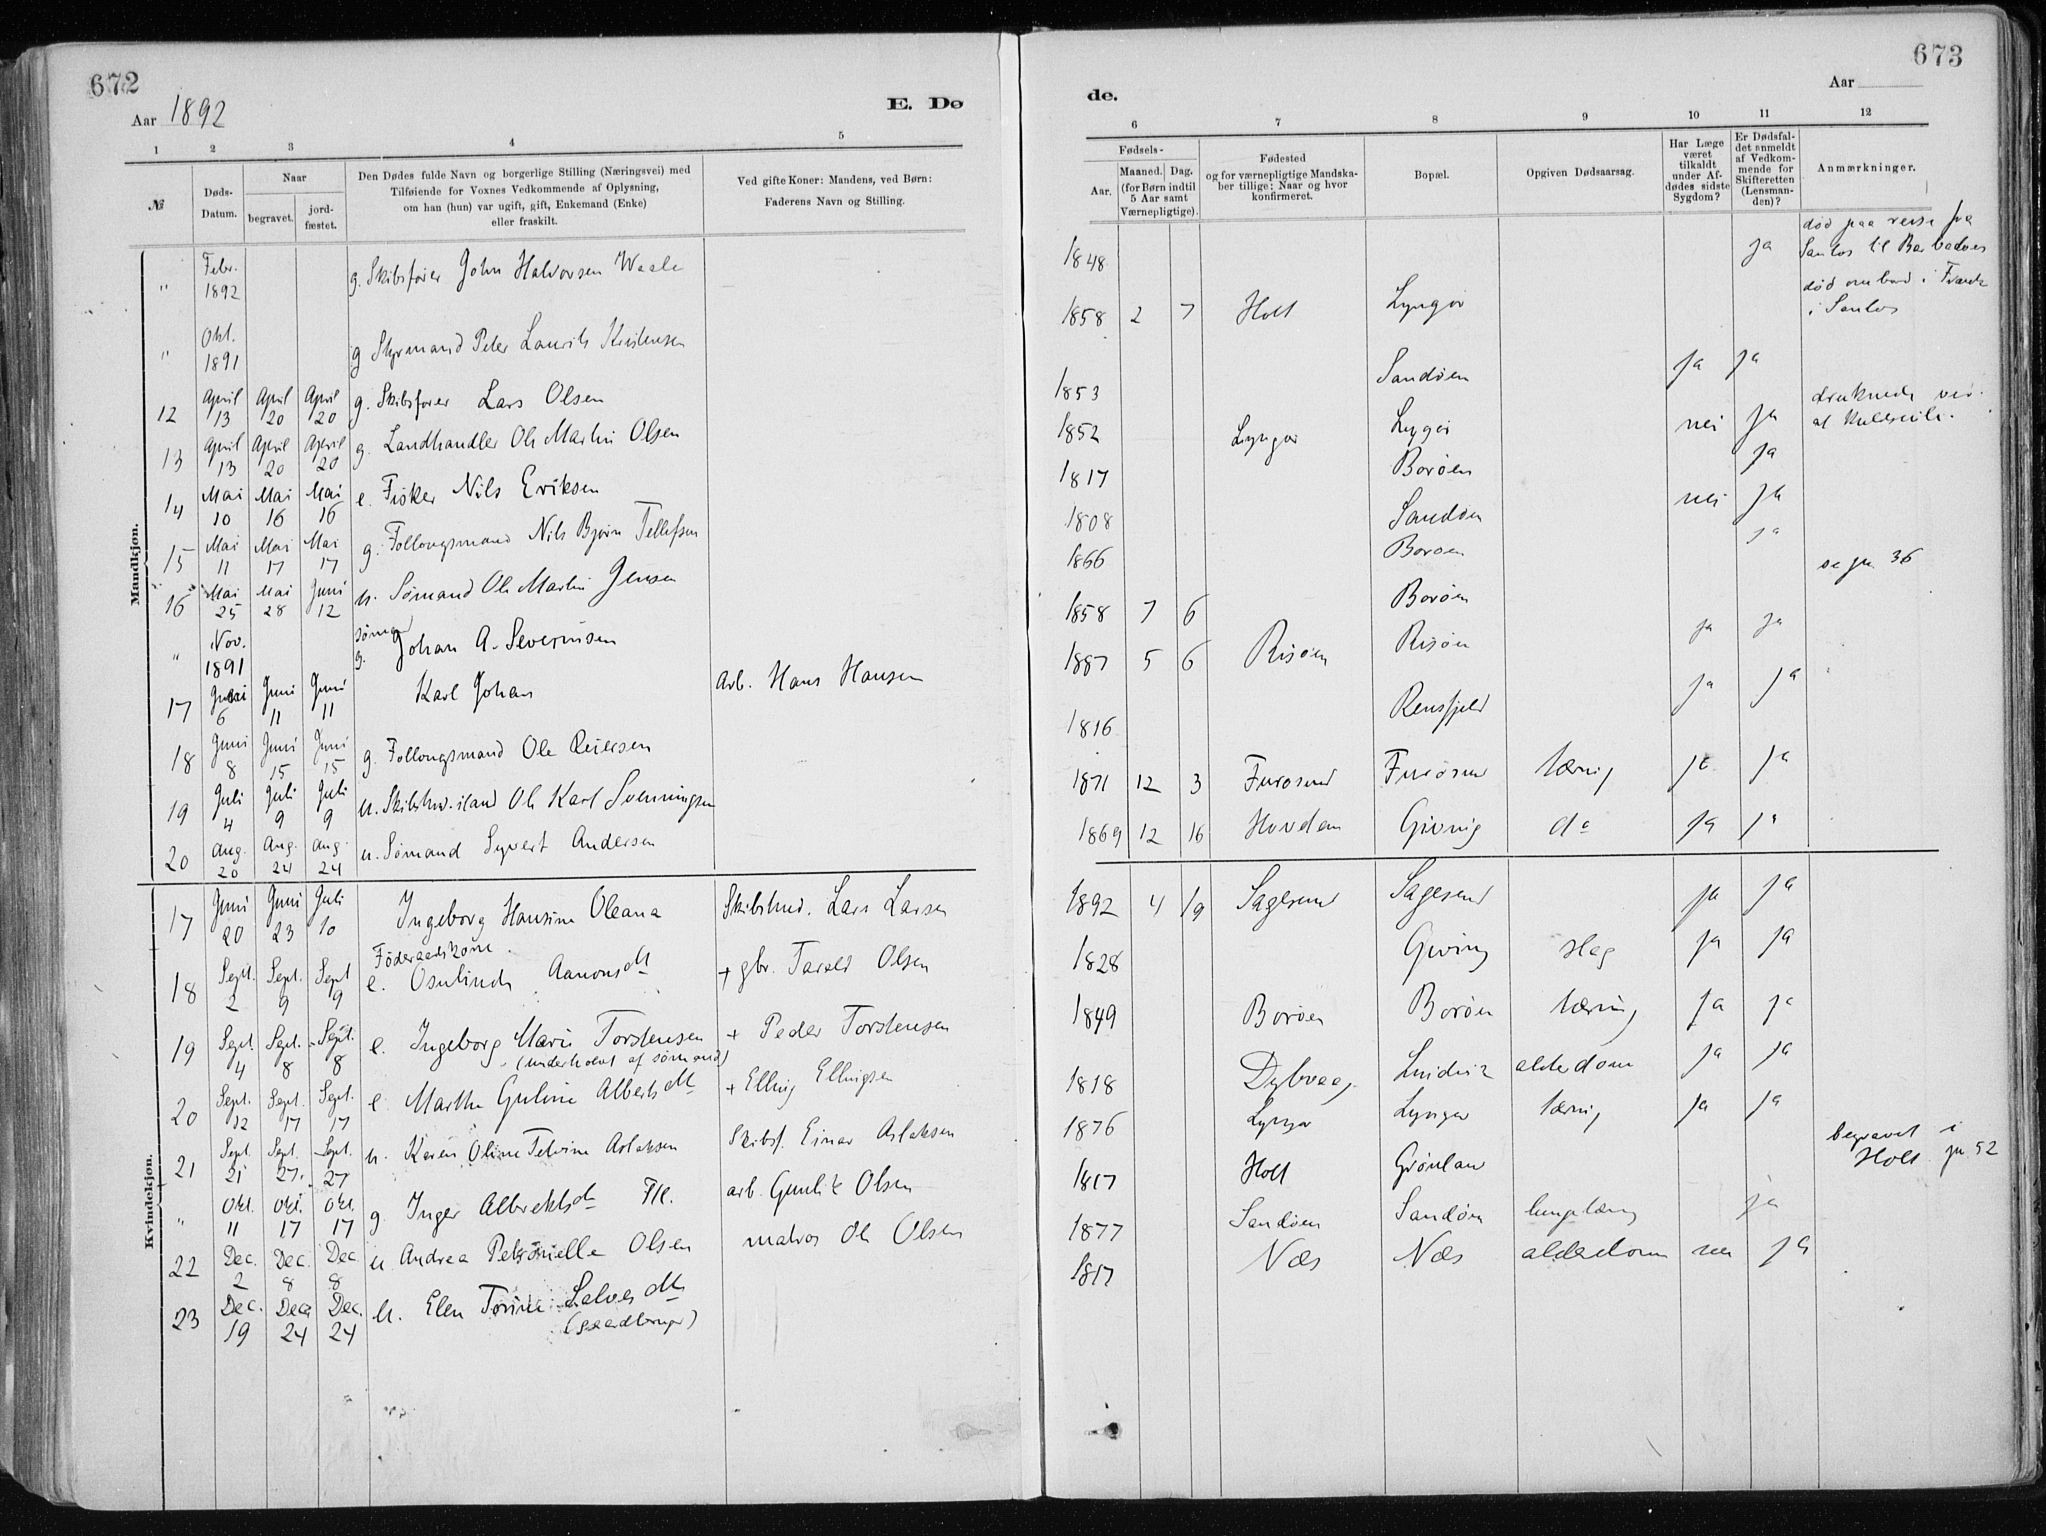 672
Aar 1892
E. Dø
1 2 3 4 5
№
Døds-Datum.
Naar
begravet.
jord-fæstet.
Den Dødes fulde Navn og borgerlige Stilling (Næringsvei) med
Tilføiende for Voxnes Vedkommende af Oplysning,
om han (hun) var ugift, gift, Enkemand (Enke)
eller fraskilt.
Ved gifte Koner: Mandens, ved Børn:
Faderens Navn og Stilling.
Mandkjøn.
" Febr. 1892 g. Skibsfører John Halvorsen Waale
" Okt. 1891 g Styrmand Peter Laurits Kristensen
12 April 13 April 20 April 20 g. Skibsfører Lars Olsen
13 April 13 April 20 April 20 g. Landhandler Ole Martin Olsen
14 Mai 10 Mai 16 Mai 16 e. Fisker Nils Eriksen
15 Mai 11 Mai 17 Mai 17 g. Follougsmand Nils Bjørn Tellefsen
16 Mai 25 Mai 28 Juni 12 u. Sømand Ole Martin Jensen
" Nov. 1891 g. Johan A. Severinsen
17 Juni 6 Juni 11 Juni 11 Karl Johan Arb. Hans Hansen
18 Juni 8 Juni 15 Juni 15 g. Follougsmand Ole Reiersen
19 Juli 4 Juli 9 Juli 9 u. Ole Karl Svenningsen
20 Aug. 20 Aug. 24 Aug. 24 u. Sømand Syvert Andersen
Kvindekjøn.
17 Juni 20 Juni 23 Juli 10 Ingeborg Hansine Oleana Skibstmd. Lars Larsen
Föderaadskone.
18 Sept. 2 Sept. 9 Sept 9 e. Osulinde Aanonsdtr + gbr. Tarald Olsen
19 Sept. 4 Sept. 8 Sept. 8 e. Ingeborg Marie Torstensen + Peder Torstensen
(underholdt af sømand)
20 Sept. 12 Sept. 17 Sept. 17 e. Marthe Guline Albertsdtr + Elling Ellingsen
21 Sept. 21 Sept. 27. Sept. 27 u. Karen Oline Telvine Aslaksen Skibsf. Einar Aslaksen
" Okt. 11 Okt. 17 Okt. 17 g. Inger Albrektsdtr arb. Gunlik Olsen
22 Dec. 2 Dec. 8 Dec 8 u. Andrea Petronielle Olsen matros Ole Olsen
23 Dec. 19 Dec 24 Dec. 24 u. Elen Torine Salvesdtr
(gaardbruger)
673
Aar
de.
6 7 8 9 10 11 12
Fødsels-
Aar.
Maaned. Dag.
(for Børn indtil
5 Aar samt
Værnepligtige).
Fødested
og for værnepligtige Mandska-
ber tillige: Naar og hvor
konfirmeret.
Bopæl.
Opgiven Dødsaarsag.
Har Læge
været
tilkaldt
under Af-
dødes sidste
Sygdom?
Er Dødsfal-
det anmeldt
af Vedkom-
mende for
Skifteretten
(Lensman-
den)?
Anmærkninger.
1848 ja død paa reise fra Santos til Barbadoes
1858 2 7 Holt Lyngør død ombord i i Santos
1853 Sandøen ja ja
1852 Lyngør Lyngør nei ja druknede
1817 Borøen ja
1808 Sandøen nei ja
1866 Borøen ja
1858 7 6 Borøen se jn. 36
1887 5 6 Risøen Risøen ja ja
1816 Rensfjeld ja ja
1871 12 3 Furøsund Furøsund tæring ja ja
1869 12 16 Hovdan Giving do ja ja
1892 4 19 Sagesund Sagesund ja ja
1828 Giving slag ja ja
1849 Borøen Borøen tæring ja ja
1818 Dybvaag Lindvik alderdom ja ja
1876 Lyngør Lyngør tæring ja ja
1817 Holt Grønland begravet i Holt jn 52
1877 Sandøen Sandøen lungetæring ja
1817 Næs Næs alderdom nei ja